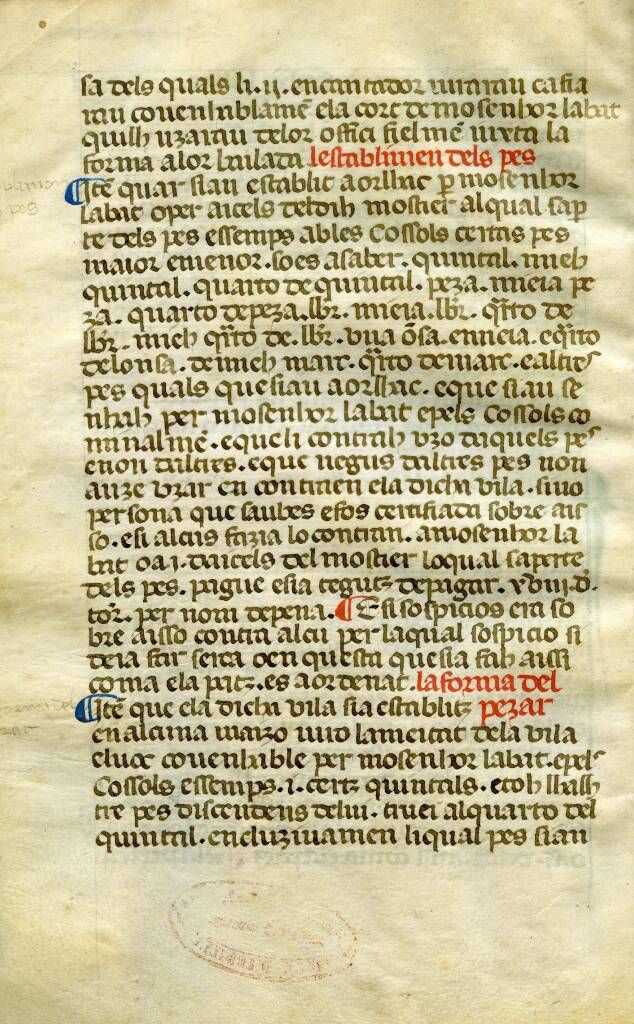 sa dels quals li .ii. encantador iuraran e afia
ran covenhablamẽ e la cort de mosenhor labat
quilh uzaran de lor offici fielmẽ iuxta la
forma a lor bailada lestablimen dels pes
Itẽ quar siau establit a orlhac p mosenhor
labat o per aicels del dih mostier al qual sap
te dels pes essemps ab les Cossols certas pes
maior e menor. so es a saber. quintal. mieh
quintal. quarto de quintal. peza. mieia pe
za. quarto de peza. lbr. mieia. lbr. qrto de
lbr. mieh qrto de. lbr. una õsa. e mieia. e qrto
del onsa. de mieh marc. qrto de marc. e altres
pes quals que siau a orlhac. e que siau se
nhah per mosenhor labat e pels Cossols co
minalmẽ. e que li contrah uzo daquels pes
e non daltres. e que negus daltres pes non
auze uzar en contrien e la dicha vila. sino
persona que saubes e fos certifiada sobre ais
so. e si alcus fazia lo contrari. a mosenhor la
bat o a .i. daicels del mostier loqual saperte
dels pes. pague e sia tegutz de pagar. xviii. d.
tor. per nom de pena. E si sospicios era so
bre aisso contra alcu per laqual sospicio si
deia far serca o en questa que sia fah aissi
coma ela patz. es aordenat. la forma del
Itẽ que ela dicha vila sia establitz pezar
en alcuna maizo vivo la meitat dela vila
e luoc covenhable per mosenhor labat. e pels
Cossols essemps .i. certz quintals. e toh lhalh
tre pes discendens de lui. truei al quarto del
quintal. encluzivamen li qual pes siau